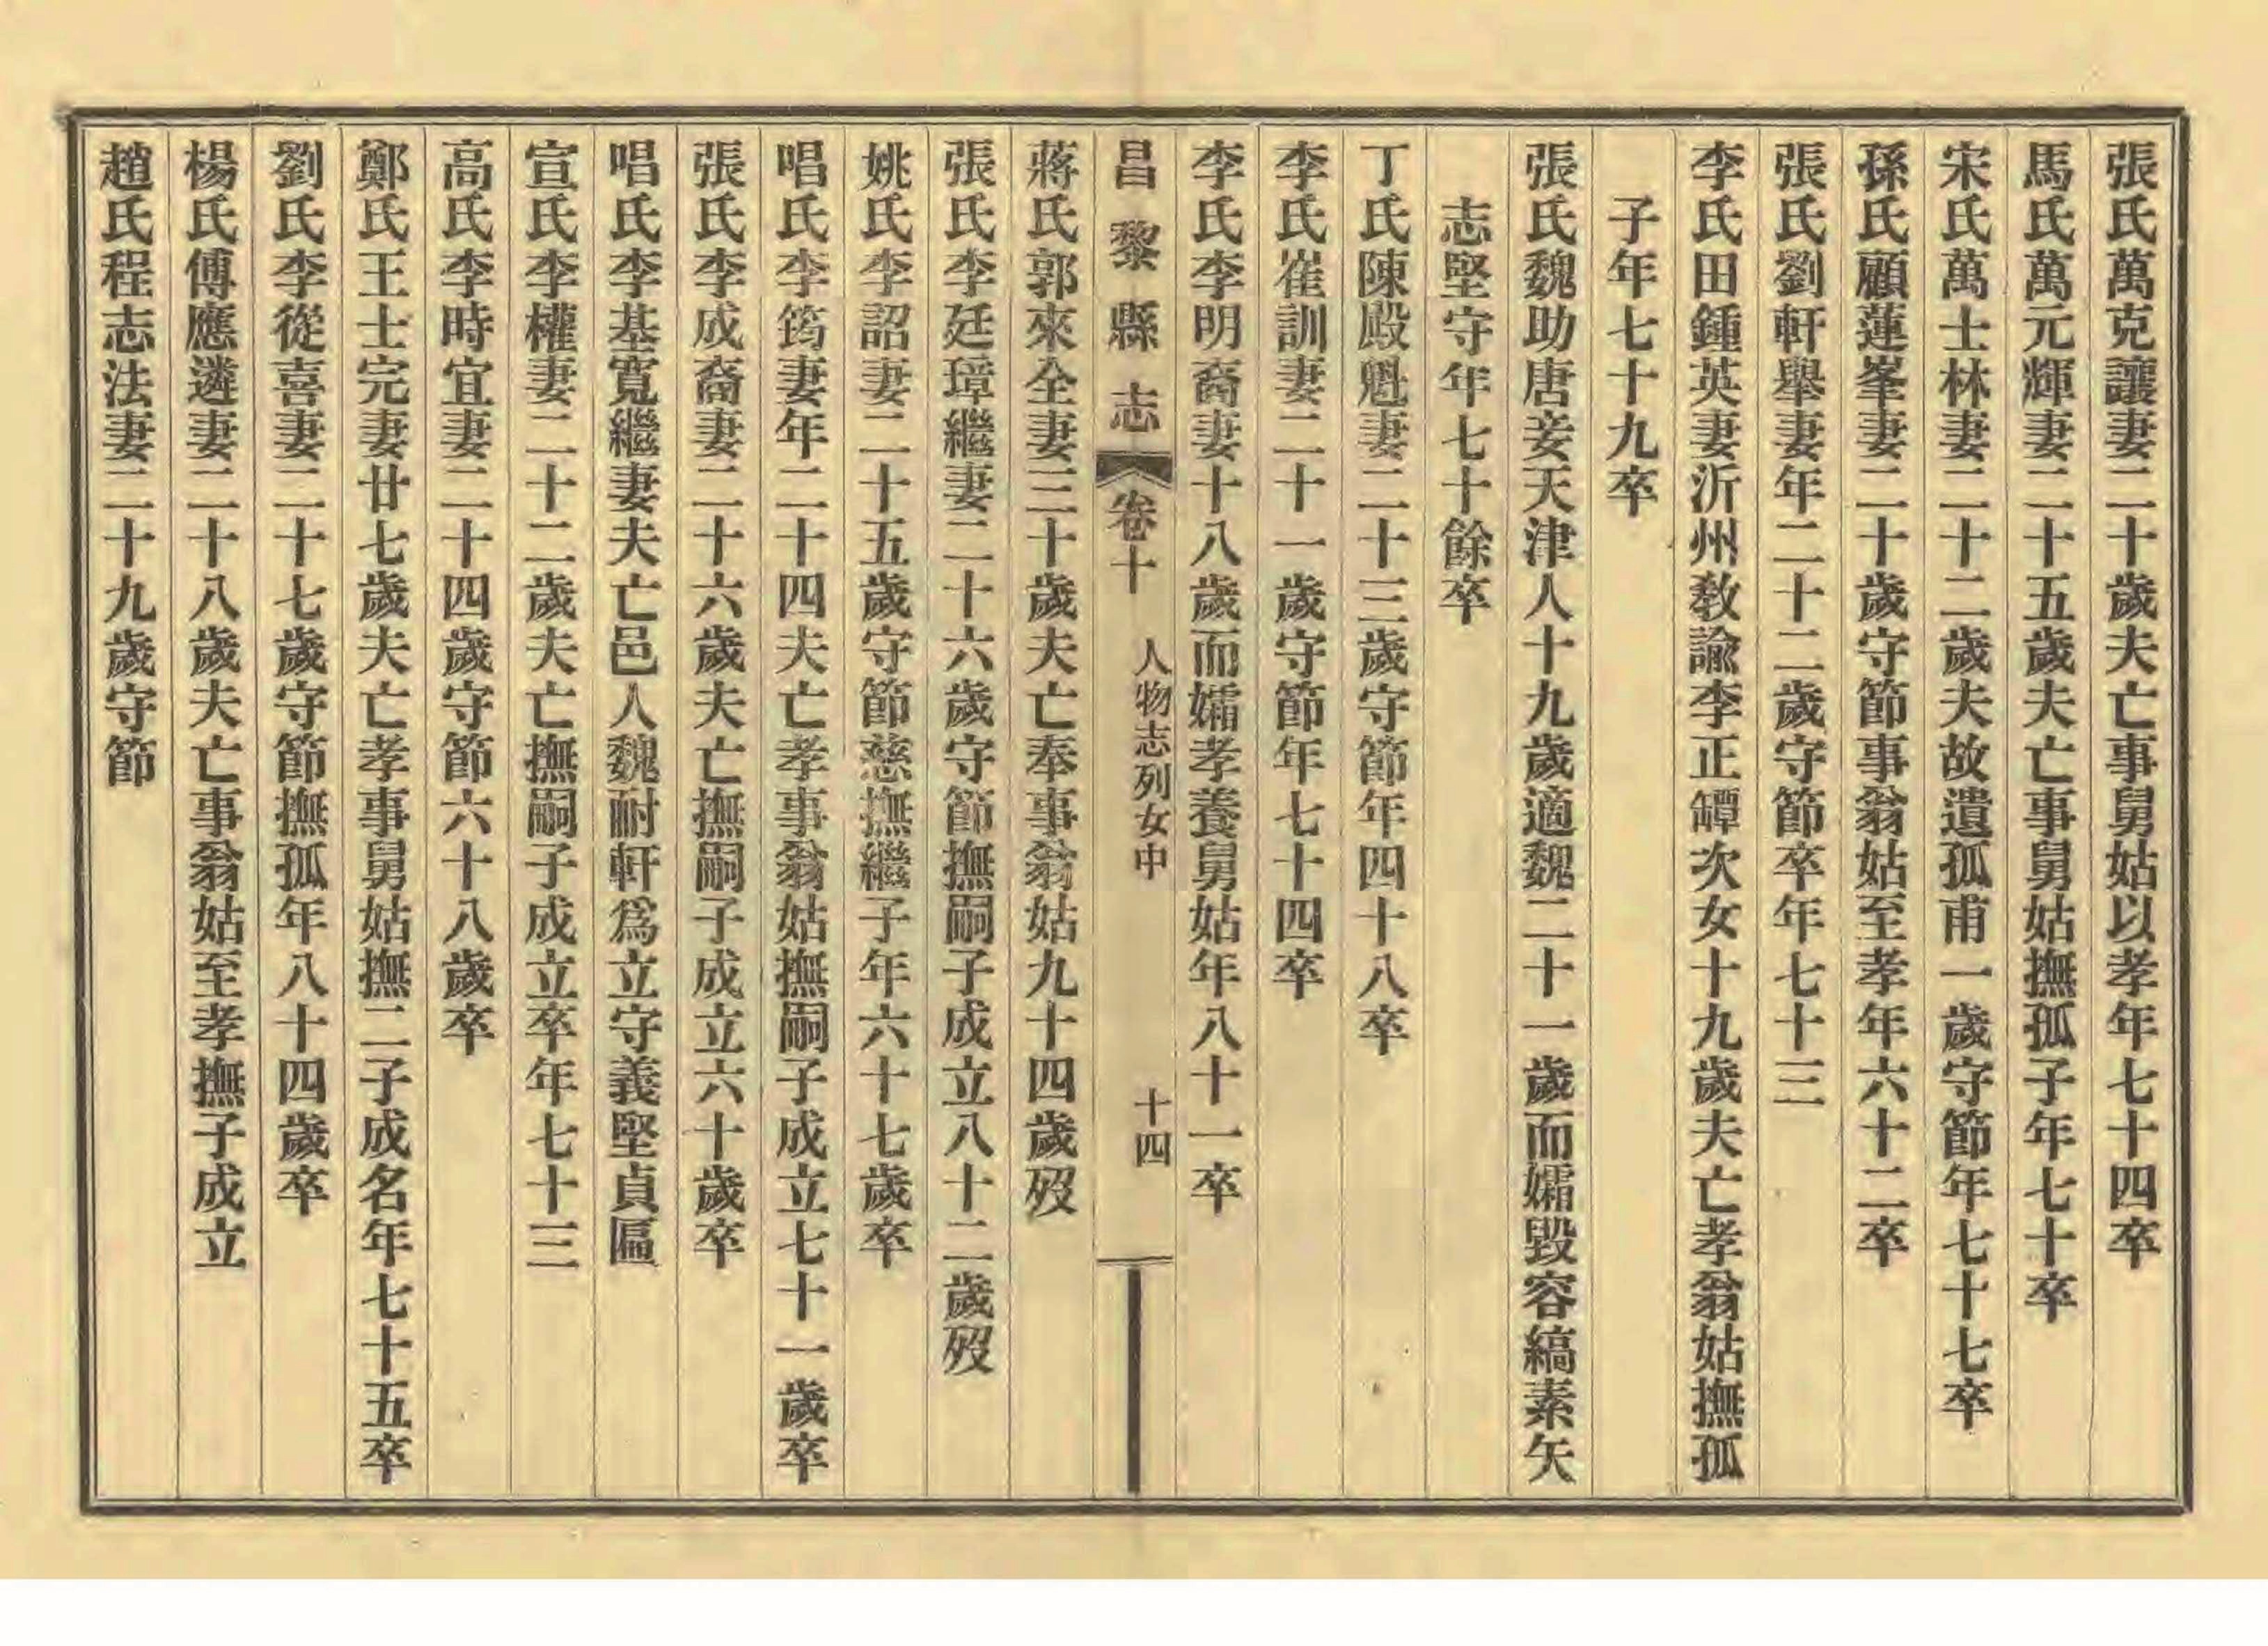 張氏萬克讓妻二十歲夫亡事舅姑以孝年七十四卒
馬氏萬元輝妻二十五歲夫亡事舅姑撫孤子年七十卒
宋氏萬士林妻二十二歲夫故遺孤甫一歲守節年七十七卒
孫氏顧蓮峯妻二十歲守節事翁姑至孝年六十二卒
張氏劉軒舉妻年二十二歲守節卒年七十三
李氏田鍾英妻沂州教諭李正罈次女十九歲夫亡孝翁姑撫孤
子年七十九卒
張氏魏助唐妾天津人十九歲適魏二十一歲而孀毀容縞素矢
志堅守年七十餘卒
丁氏陳殿魁妻二十三歲守節年四十八卒
李氏崔訓妻二十一歲守節年七十四卒
李氏李明裔妻十八歲而孀孝養舅姑年八十一卒
昌黎縣志 卷十 人物志列女中 十四
蔣氏郭來全妻三十歲夫亡奉事翁姑九十四歲歿
張氏李廷璋繼妻二十六歲守節撫嗣子成立八十二歲歿
姚氏李詔妻二十五歲守節慈撫繼子年六十七歲卒
唱氏李筠妻年二十四夫亡孝事翁姑撫嗣子成立七十一歲卒
張氏李成裔妻二十六歲夫亡撫嗣子成立六十歲卒
唱氏李基寬繼妻夫亡邑人魏耐軒爲立守義堅貞區
宣氏李權妻二十二歲夫亡撫嗣子成立卒年七十三
高氏李時宜妻二十四歲守節六十八歲卒
鄭氏王士完妻廿七歲夫亡孝事舅姑撫二子成名年七十五卒
劉氏李從喜妻二十七歲守節撫孤年八十四歲卒
楊氏傅應遴妻二十八歲夫亡事翁姑至孝撫子成立
趙氏程志法妻二十九歲守節